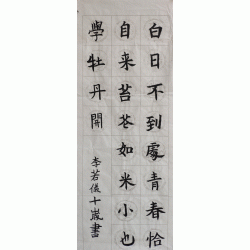 白日不到處青春恰
自来苔花如米小也
學牡丹開
李若儀十歲書